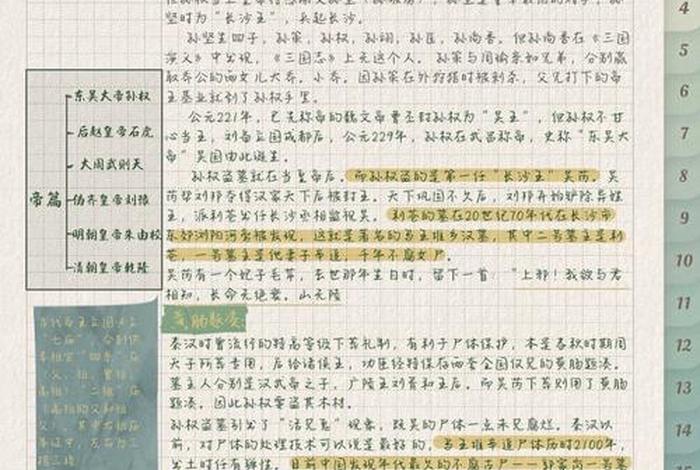 坚时为“长沙王”，兵起长沙。
孙坚生四子，孙策，孙权，孙翊，孙匡，孙尚香。但孙尚香在《三国
演义》中出现，《三国志》上无这个人。孙策与周瑜亲如兄弟，分别赢
取乔公的两女儿大乔，小乔。因孙策在外狩猎时被刺杀，父兄打下的帝
王基业就到了孙权手里。
公元221年，已先称帝的魏文帝曹丕封孙权为“吴王”，但孙权不甘
心当王，刘备立国成都后，公元229年，孙权在武昌称帝，史称“东吴大
帝”吴国由此诞生。
孙权盗墓就在当皇帝后。而孙权盗的是第一任“长沙王”吴芮。吴
芮帮刘邦夺得汉家天下后被封王。天下巩固不久后，刘邦开始铲除异姓
王，派利苍出任长沙丞相监视吴。利苍的墓在20世纪70年代在长沙市
东郊浏阳河旁被发现，这就是著名的马王堆乡汉墓，其中二号墓主是利
苍，一号墓主是他妻子辛追，千年不腐女尸。
吴芮有一个妃子毛苹，去世那年生日时，留下一首：“上邪！我欲与君
相知，长命无绝衰。山无陵
黄肠题凑：
秦汉时曾流传的特高等级下葬礼制，有利于尸体保护，本是春秋时期周
天子所专用，后给诸侯王，功臣经特保存两套全国仅见的黄肠题凑。
墓主人分别是汉武帝之子，广陵王刘胥和王后。而吴芮下葬则用了黄肠
题凑。因此孙权要盗其木材。
孙权盗墓引出了“活见鬼”现象，既吴的尸体一点未见腐烂。秦汉以
前，对尸体的处理技术可以说是最好的，马王堆辛追尸体历时2100年，
出土时任有弹性。目前中国发现年代最久的不腐古尸——
帝篇
东吴大帝孙权
后赵皇帝石虎
大周武则天
伪齐皇帝刘豫
明朝皇帝朱由校
清朝皇帝乾隆
4
5
6
7
8
9
10
11
12
13
14